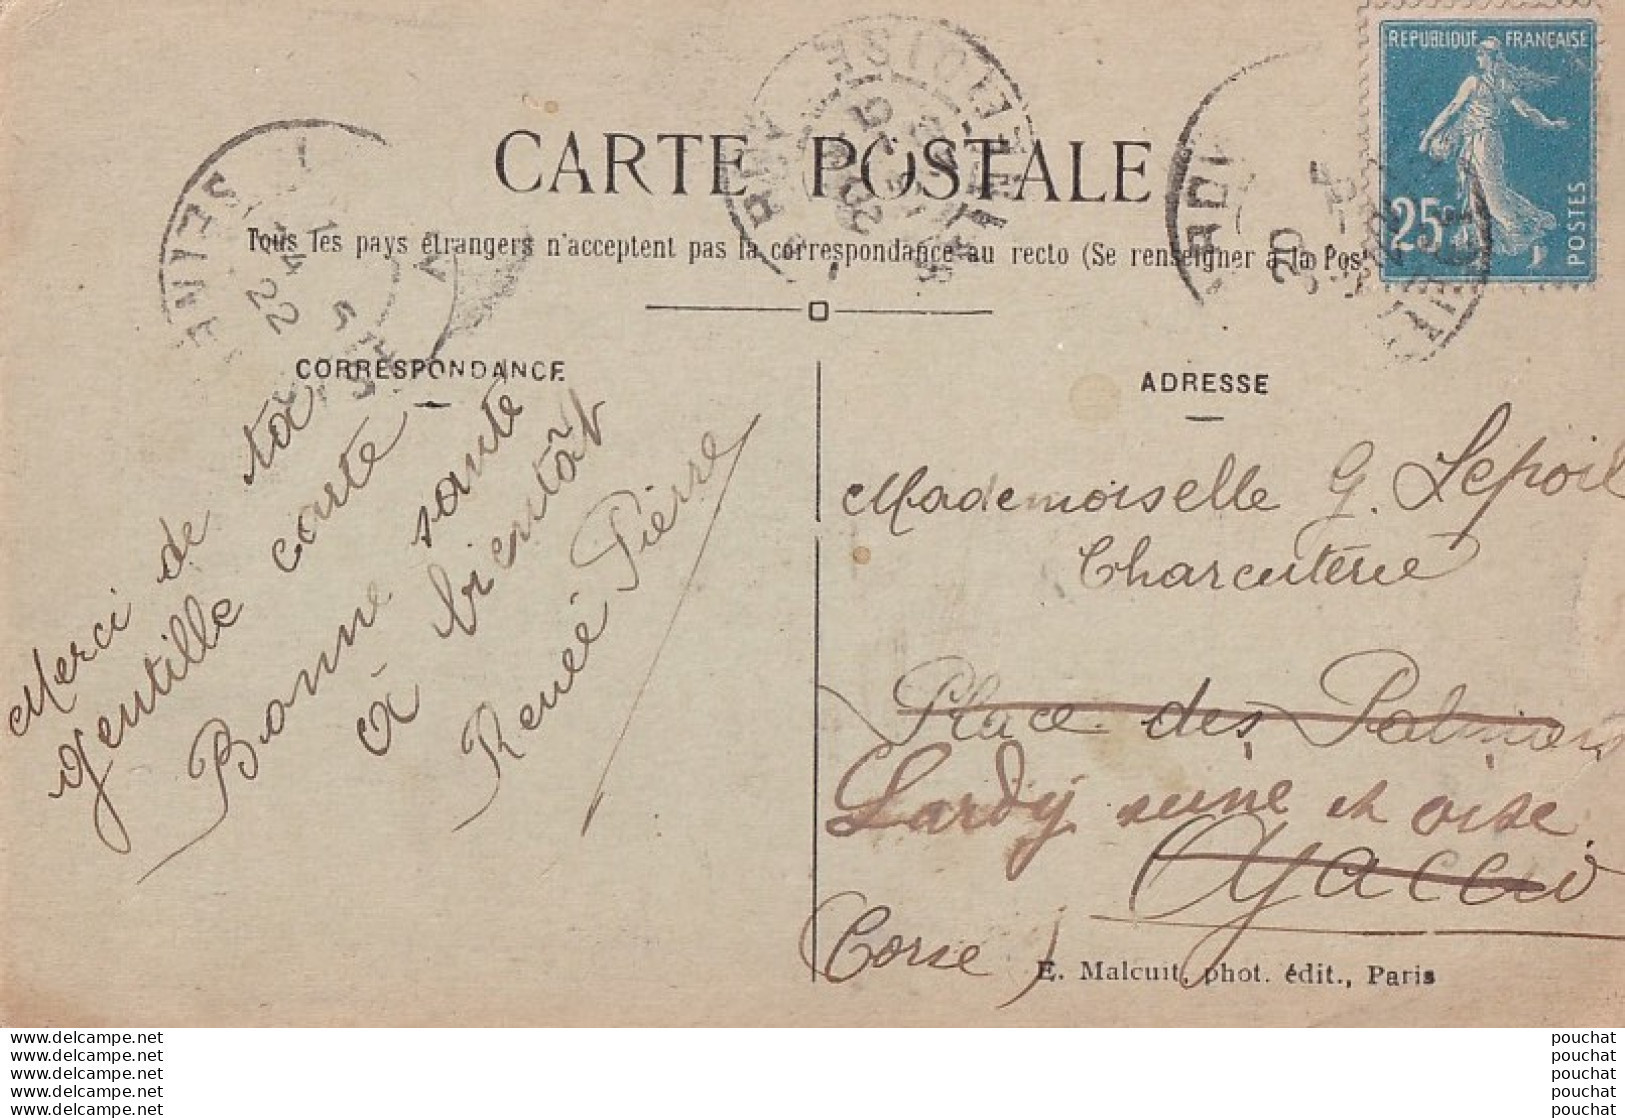 CARTE POSTALE
Tous les pays étrangers n'acceptent pas la correspondance au recto (Se renseigner à la Pos
REPUBLIQUE FRANÇAISE
25c
POSTES
SEINE
14
22
CORRESPONDANCE
Merci de ta
gentille carte
Bonne santé
à bientôt
Renée Pierre
ADRESSE
Mademoiselle G. Lepoil
Charcuterie
Place des Palmiers
Lardy seine et oise
Ajaccio
(Corse)
E. Malcuit, phot. édit., Paris
www.delcampe.net
www.delcampe.net
www.delcampe.net
www.delcampe.net
www.delcampe.net
pouchat
pouchat
pouchat
pouchat
pouchat